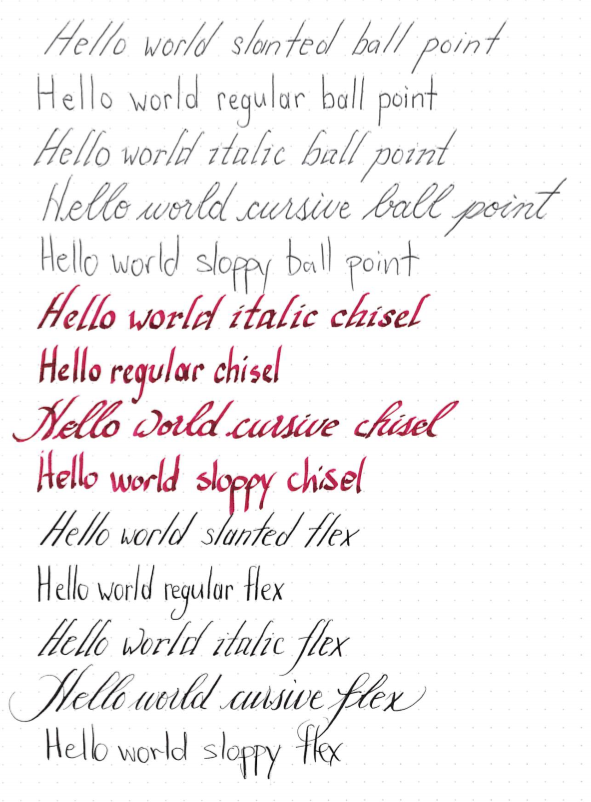 Hello world slanted ball point
Hello world regular ball point
Hello world italic ball point
Hello world cursive ball point
Hello world sloppy ball point
Hello world italic chisel
Hello regular chisel
Hello world cursive chisel
Hello world sloppy chisel
Hello world slanted flex
Hello world regular flex
Hello world italic flex
Hello world cursive flex
Hello world sloppy flex